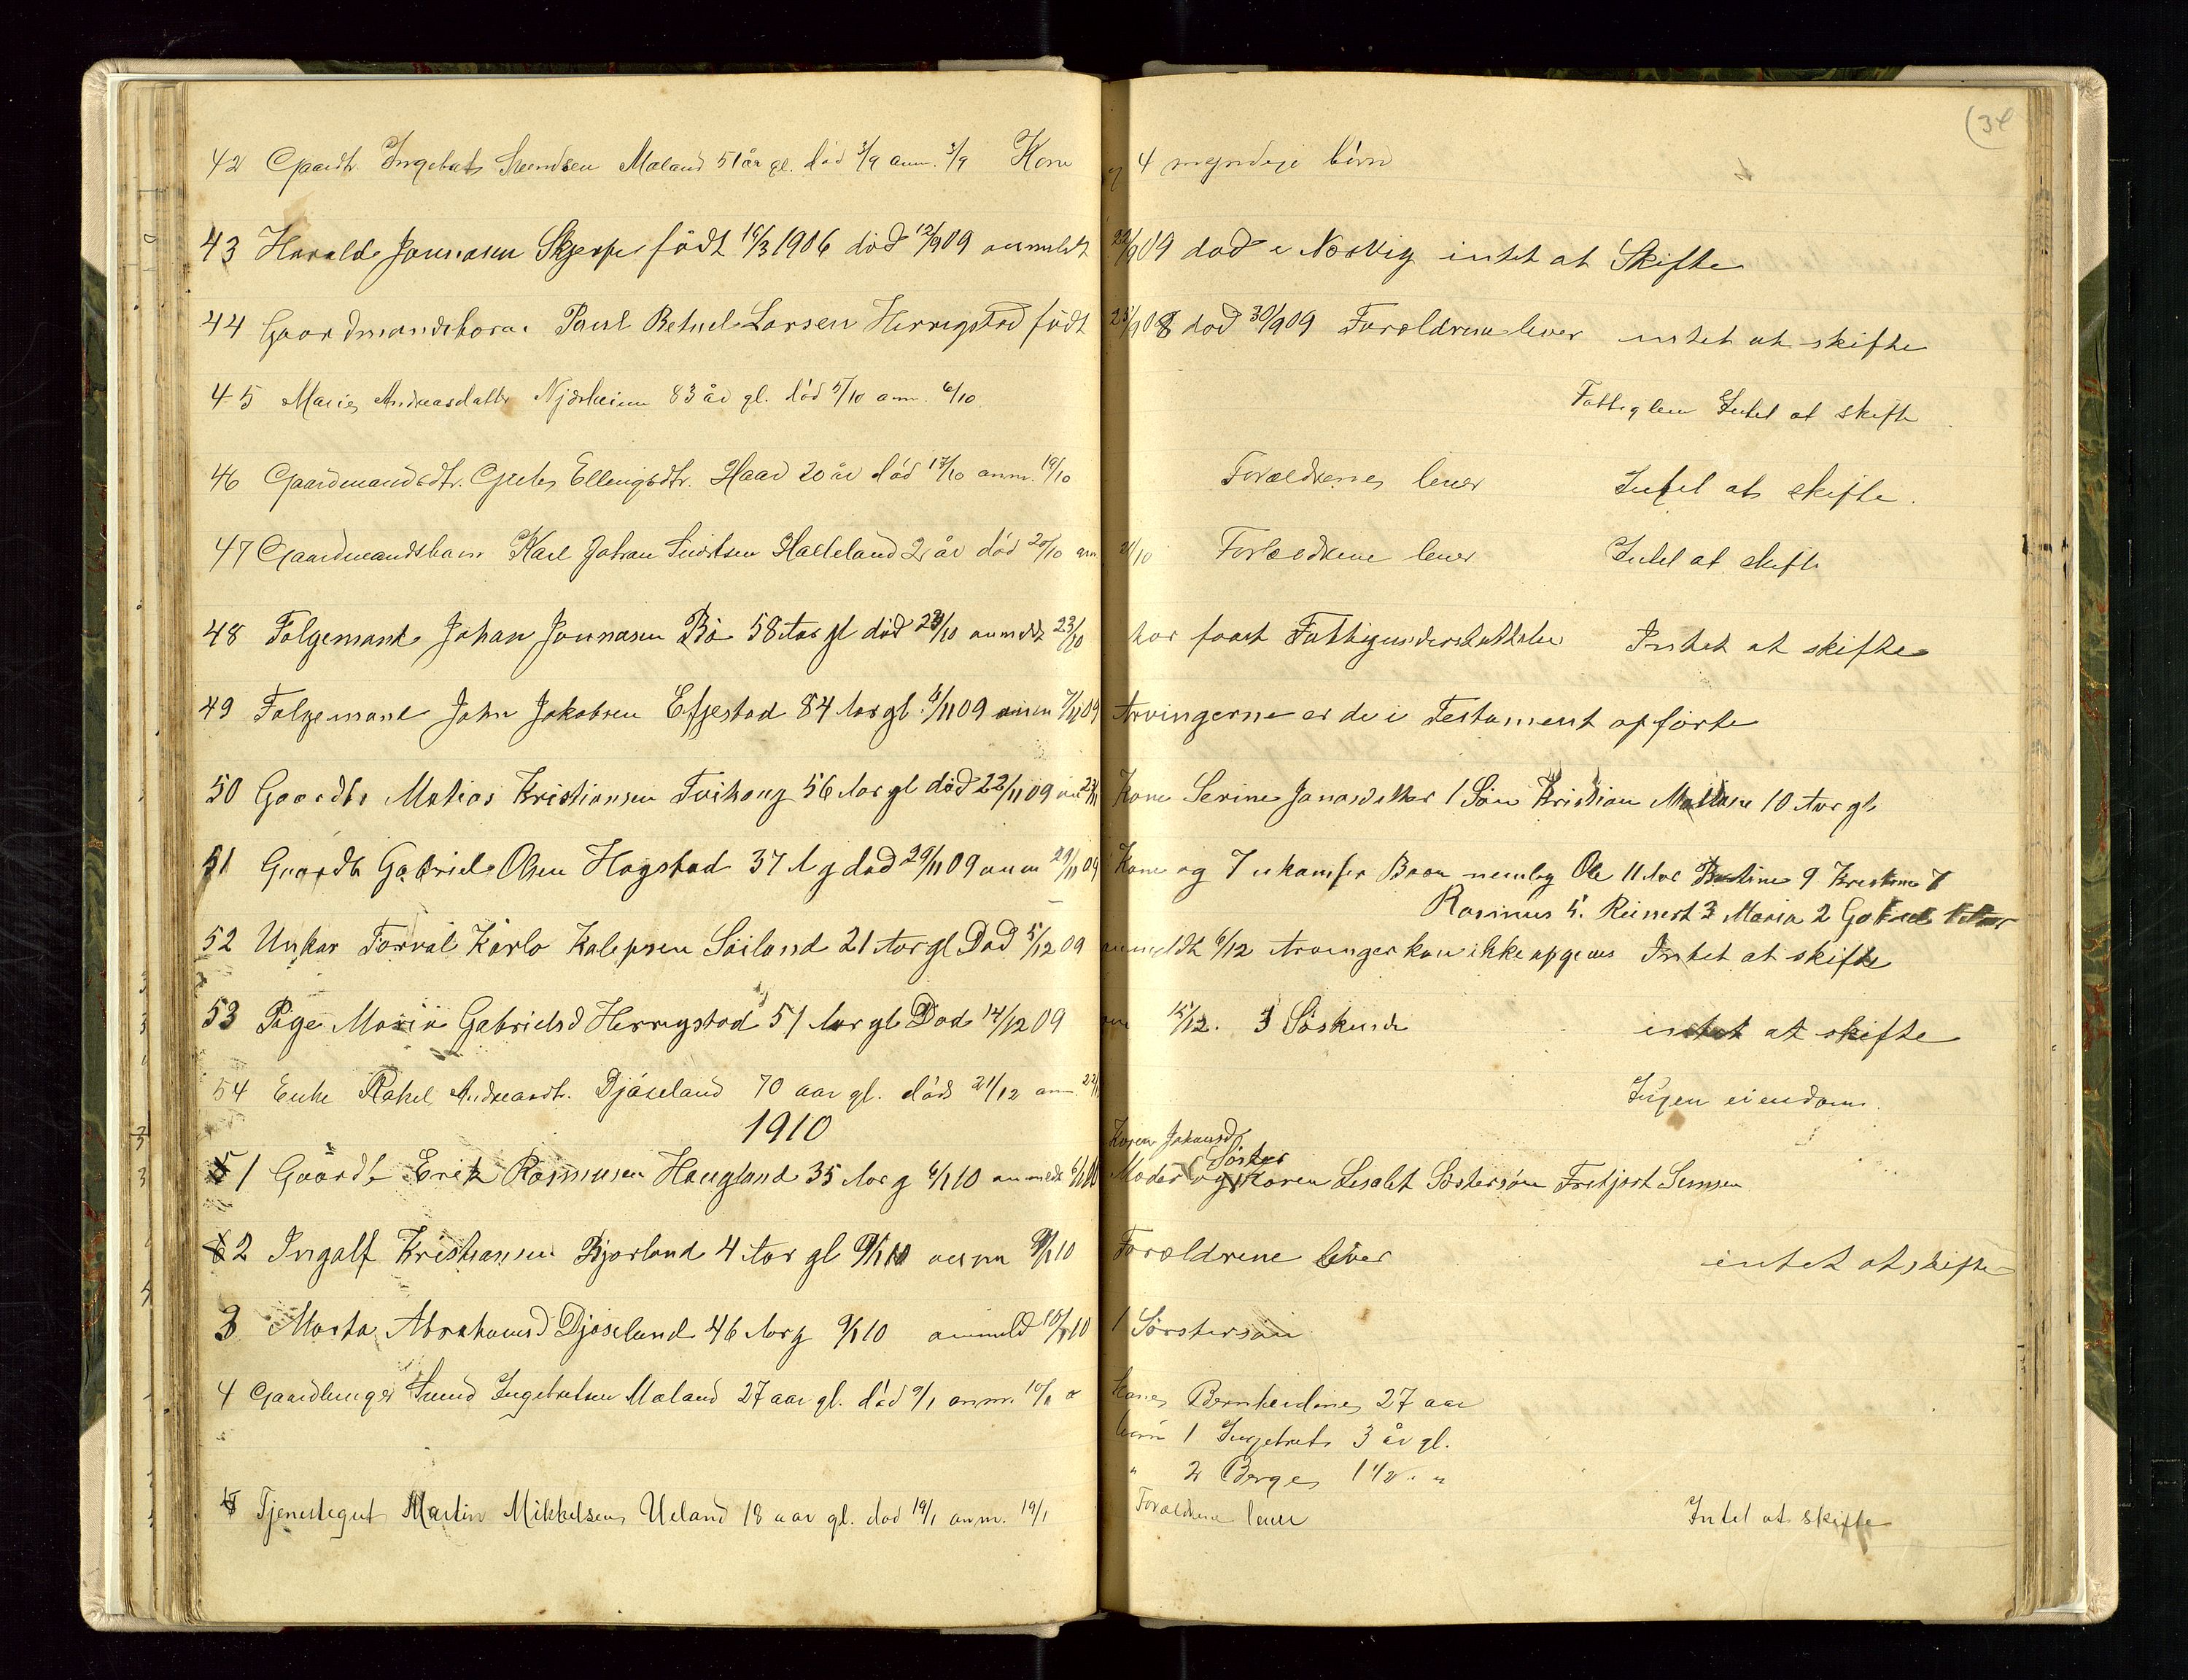 (34
42 Gaardb. Ingebret Svendsen Maland 51 år gl. død 3/9 anm. 3/9 Kone og 4 myndige börn
43 Harald Jonnasen Skjerpe född 16/3 1906 död 12/9 09 anmeldt 22/9 09 död i Narvig intet at Skifte
44 Gaardmandsbarn Paul Betuel Larsen Herrigstad född 23/9 08 död 30/9 09 Foreldrene lever intet at skifte
45 Marie Andreasdatter Njærheim 83 år gl. död 5/10 anm. 6/10 Fattiglem Intet at skifte
46 Gaardmandsdtr. Ellingsdtr. Haar 20 år död 17/10 anm. 19/10 Forældrene lever Intet at skifte.
47 Gaardmandsbarn Karl Johan Sivertsen Hatteland 2 år död 20/10 anm 21/10 Forældrene lever Intet at skifte
48 Folgemand Johan Jonnasen Bö 58 Aar gl död 23/10 anmeldt 23/10 har faaet Fattigunderstøttelse Intet at skifte
49 Folgemand John Jakobsen Efjestad 84 Aar gl. 6/11 09 anm 7/11 09 Arvingerne er de i Testament opförte
50 Gaardb Matias Kristiansen Tuihoug 56 Aar gl död 22/11 09 an 23/11 Kone Serine Janasdatter 1 Sön Kristian 10 Aar gl
51 Gaardb Gabriel Olsen Hogstad 37 A g död 29/11 09 anm 29/11 09 Kone og 7 ukonfir Born nemlig Ole 11 Aar 9 Kristine 7
Rasinus 5. Reinert 3 Maria 2 Gabriel
52 Unkar Torval Karlo Kalepsen Soiland 21 Aar gl Död 5/12 09 anmeldt 6/12 Arvinger kan ikke opgives Intet at skifte
53 Pige Maria Gabrielsd Herrigstad 51 Aar gl Död 14/12 09 anm 15/12. 3 Söskende intet at skifte
54 Enke Rakel Andreasdt. Djøseland 70 aar gl. død 21/12 anm. 22/12 Ingen eiendom.
1910
Karen Johansd
1 Gaardb Erik Rasmusen Haugland 35 Aar g 6/1 10 anmeldt 6/1 10 Moder og Söster Karen Lisabet Söstersön Fritjort Simsen
2 Ingolf Kristiansen Bjorland 4 Aar gl 9/1 10 anm 9/1 10 Foreldrene lever intet at skifte
3 Marta Abrahamsd Djøseland 46 Aar g 9/1 10 anmeld 10/1 10 1 Sörstersön
4 Gaardbruger Svend Ingebretsen Maland 27 aar gl. död 9/1 anm. 10/1 Kone Bernhardine 27 aar
börn 1 Ingebret 3 år gl.
" 2 Berge 1 1/2 " "
5 Tjenestegut Martin Mikkelsen Ueland 18 aar gl. död 19/1 anm. 19/1 Forældrene lever Intet at skifte